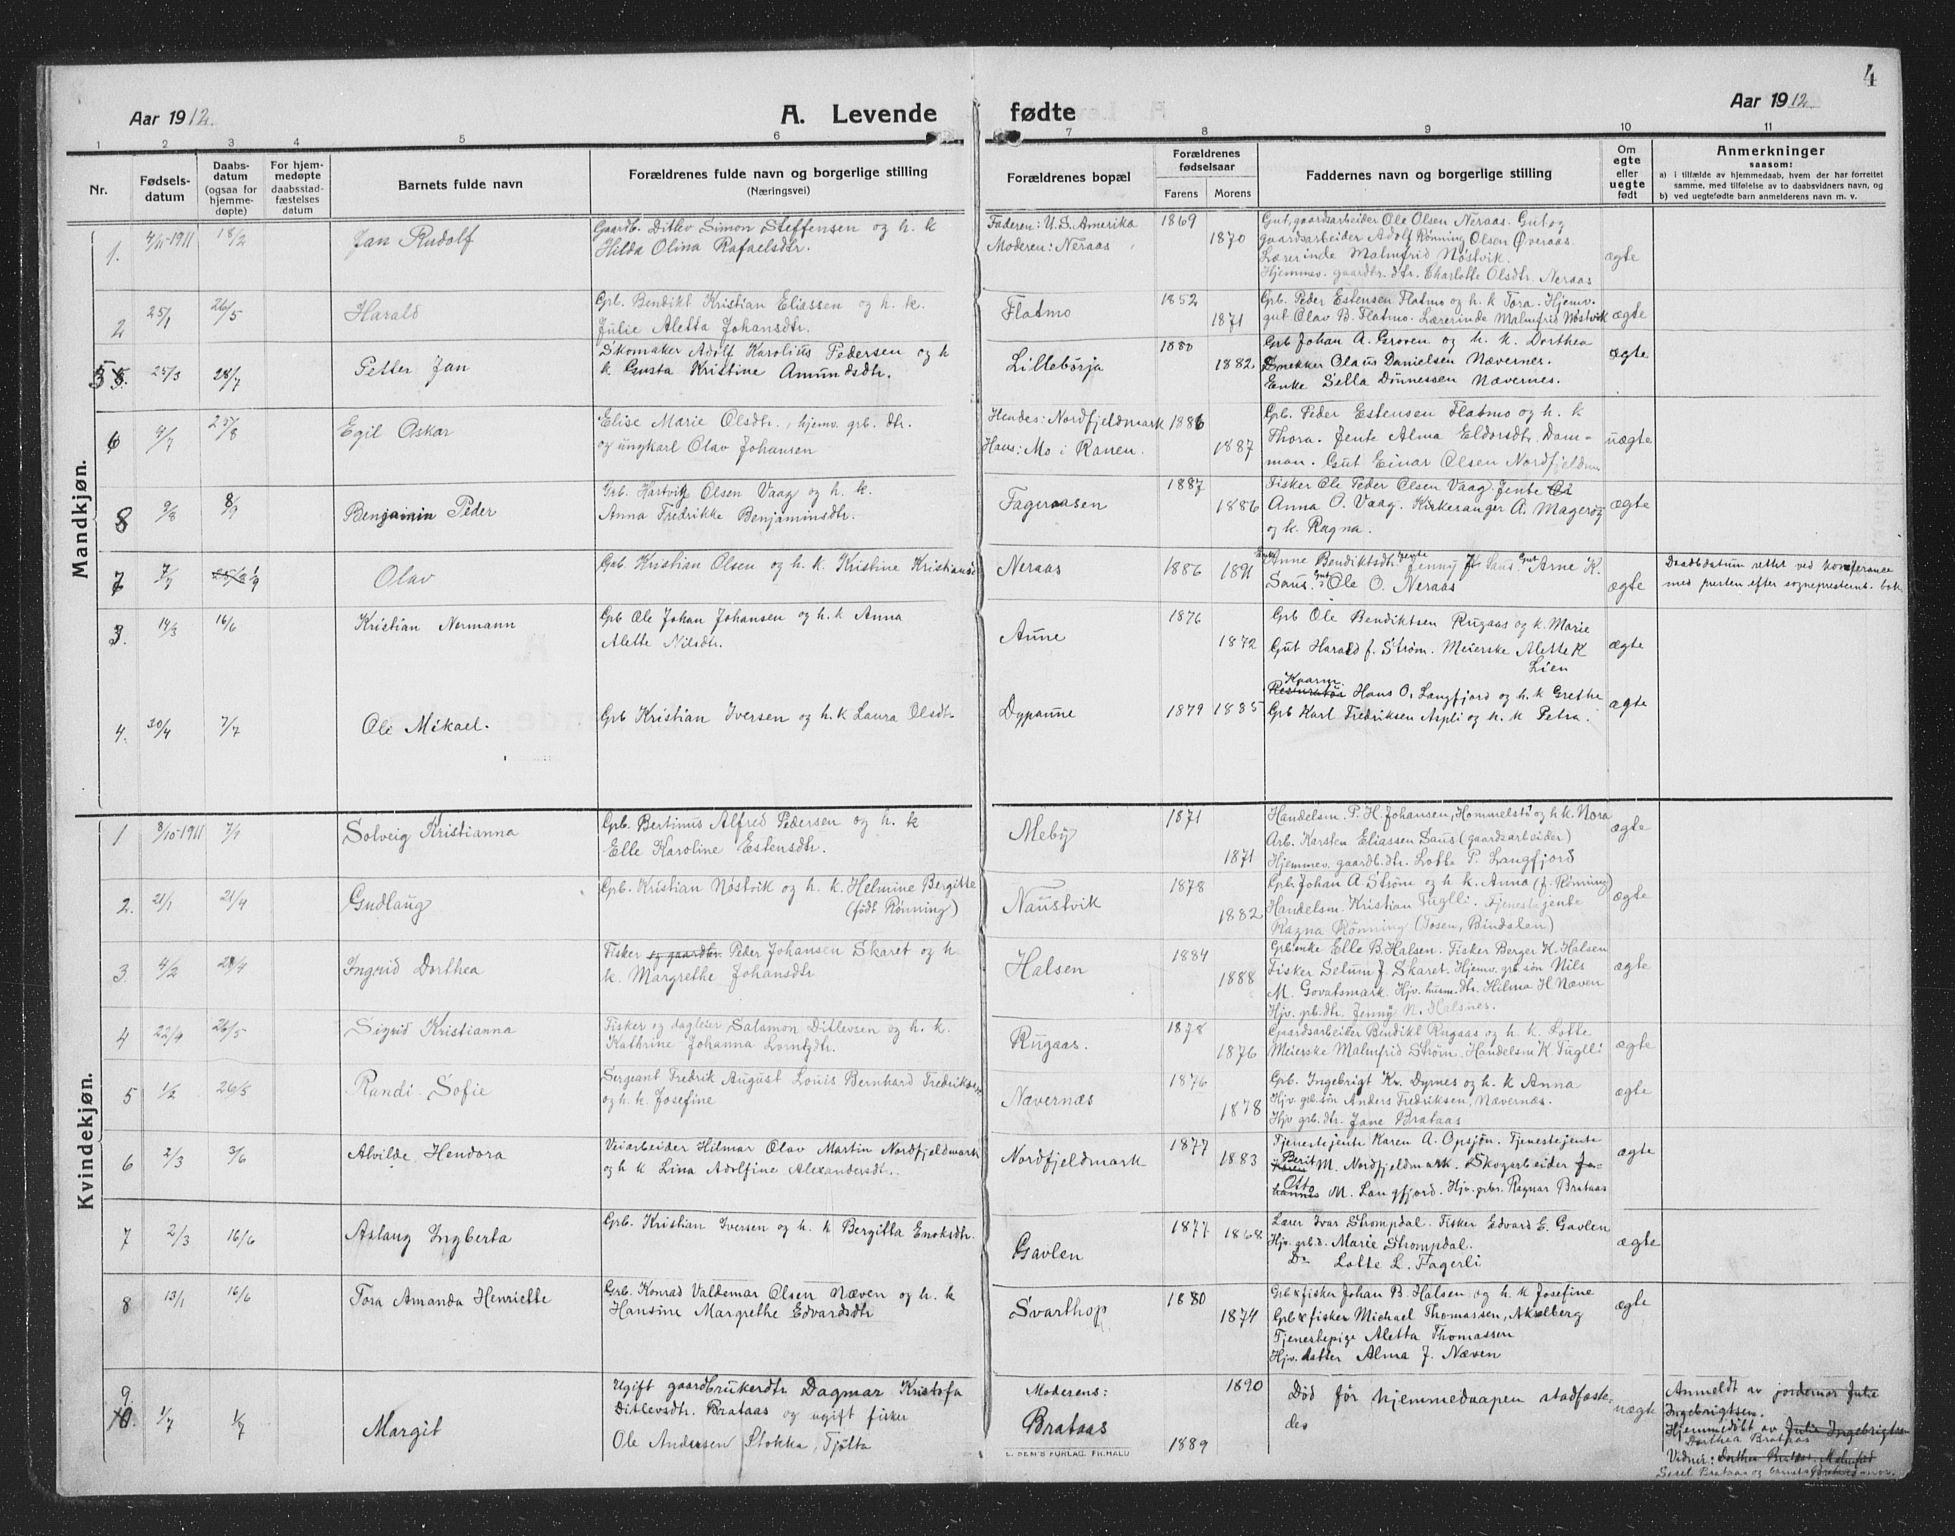 4
Aar 1912.
A. Levende fødte
Aar 1912.
1 2 3 4 5 6 7 8 9 10 11
Nr.
Fødsels-
datum
Daabs-
datum
(ogsaa for
hjemme-
døpte)
For hjem-
medøpte
daabsstad-
fæstelses
datum
Barnets fulde navn
Forældrenes fulde navn og borgerlige stilling
(Næringsvei)
Forældrenes bopæl
Forældrenes
fødselsaar
Farens Morens
Faddernes navn og borgerlige stilling
Om
egte
eller
uegte
født
Anmerkninger
saasom:
a) i tilfælde av hjemmedaab, hvem der har forrettet
samme, med tilføielse av to daabsvidners navn, og
b) ved uegtefødte barn anmelderens navn m. v.
Mandkjøn.
1. 4/11-1911 18/2 Jan Rudolf
Gaardb. Ditlev Simon Steffensen og h. k
Hilda Olina Rafaelsdtr.
Faderen: U.S. Amerika
Moderen: Neraas
1869 1870
Gut, gaardsarbeider Ole Olsen Neraas. Gut og
gaardsarbeider Adolf Rønning Olsen Øveraas.
Lærerinde Malmfrid Nøstvik.
Hjemmev. gaardbr. dtr. Charlotte Olsdtr. Neraas
ægte
2 25/1 26/5 Harald
Grb. Bendikt Kristian Eliassen og h. k.
Julie Aletta Johansdtr.
Flatmo
1852 1871
Grb. Peder Estensen Flatmo og h. k Tora. Hjemv.
gut Olav B. Flatmo. Lærerinde Malmfrid Nøstvik
ægte
5 25/3 28/7 Petter Jan
Skomaker Adolf Karolius Pedersen og h
k Gusta Kristine Amundsdtr.
Lillebørja
1880 1882
Grb Johan A. Groven og h. k. Dorthea
Snekker Olaus Danielsen Nævernes.
Enke Sella Dønnessen Nævernes.
ægte
6 4/7 25/8 Egil Oskar
Elise Marie Olsdtr., hjemv. grb. dtr.
og ungkarl Olav Johansen
Hendes: Nordfjeldmark
Hans: Mo i Ranen.
1886 1887
Grb. Peder Estensen Flatmo og h. k
Thora. Jente Alma Eldorsdtr. Dam-
man. Gut Einar Olsen Nordfjeldm
uægte
8 9/8 8/9 Benjamin Peder
Grb. Hartvig Olsen Vaag og h. k.
Anna Fredrikke Benjaminsdtr.
Fageraasen
1887 1886
Fisker Ole Peder Olsen Vaag. Jente
Anna O. Vaag. Kirkesanger A. Magerøy
og k. Ragna.
ægte
7 7/7 25/8 1/9 Olav
Grb Kristian Olsen og h. k. Kristine Kristiansd
Neraas
1886 1891
Enke Anne Bendiktsdtr. Jente Jenny J. Saus Gut Arne K.
Saus. Gut Ole O. Neraas
ægte
Daabsdatum rettet ved konferance
med presten efter sogneprestemb. bok
3. 14/3 16/6 Kristian Normann
Grb Ole Johan Johansen og h. k Anna
Alette Nilsdtr.
Aune
1876 1872
Grb Ole Bendiktsen Rugaas og k. Marie
Gut Harald J. Strøm. Meierske Alette K
Lien
ægte
4. 30/4 7/7 Ole Mikael.
Grb Kristian Iversen og h. k Laura Olsdtr
Dypaune
1879 1885
Kvarm.
Hans O. Langfjord og h. k Grethe
Grb Karl Fredriksen Aspli og h. k Petra.
ægte
Kvindekjøn.
1 8/10-1911 7/1 Solveig Kristianna
Grb. Bertinus Alfred Pedersen og h. k
Elle Karoline Estensdtr.
Meby
1871 1871
Handelsm. P. H. Johansen, Hommelstø og h. k. Nora
Arb. Karsten Eliassen Saus (gaardsarbeider)
Hjemmev. gaardb. dtr. Lotte P. Langfjord
ægte
2. 21/1 21/4 Gudlaug
Grb. Kristian Nøstvik og h. k. Helmine Bergitte
(født Rønning)
Naustvik
1878 1882
Grb. Johan A. Strøm og h. k. Anna (f. Rønning)
Handelsm. Kristian Fuglli. Tjenestejente
Ragna Rønning (Tosen, Bindalen)
ægte
3 4/2 21/4 Ingrid Dorthea
Fisker og gaardbr. Peder Johansen Skaret og h.
k. Margrethe Johansdtr
Halsen
1884 1888
Grb.enke Elle B. Halsen. Fisker Berger K. Halsen
Fisker Selum J. Skaret. Hjemv. grb. søn Nils
M. Govatsmark. Hjv. husm. dtr. Hilma H Næven
Hjv. grb. dtr. Jenny N. Halsnes.
ægte
4 22/4 26/5 Sigrid Kristianna
Fisker og dagleier Salamon Ditlevsen og h. k.
Kathrine Johanna Lorntzdtr.
Rugaas.
1878 1876
Gaardsarbeider Bendikt Rugaas og h. k. Lotte
Meierske Malmfrid Strøm, Handelsm K. Fuglli
ægte
5 1/2 26/5 Randi Sofie
Sergeant Fredrik August Louis Bernhard Fredriksen
og h. k. Josefine
Nævernæs
1876 1878
Grb. Ingebrigt Kr. Dyrnes og h. k Anna
Hjv. grb. søn Anders Fredriksen, Nævernæs.
Hjv grb. dtr. Jane Brataas
ægte
6 2/3 3/6 Alvilde Hendora
Veiarbeider Hilmar Olav Martin Nordfjeldmark
og h k Lina Adolfine Alexandersdt.
Nordfjeldmark
1877 1883
Tjenestejente Karen A. Opsjøn. Tjenestejente
Karen Berit M. Nordfjeldmark. Skogarbeider Jo-
hannes Otto M. Langfjord. Hjv. grbr. Ragnar Brataas
ægte
7 2/3 16/6 Aslaug Ingberta
Grb. Kristian Iversen og h. k Bergitta Enoksdtr.
Gavlen
1877 1868
Lærer Ivar Strompdal. Fisker Edvard E. Gavlen
Hjv. grb. d. Marie Strompdal.
Do Lotte L. Fagerli
ægte
8 13/1 16/6 Tora Amanda Henriette
Grb. Konrad Valdemar Olsen Næven og h. k
Hansine Margrethe Edvardsdtr
Svarthop
1880 1874
Grb x fisker Johan B. Halsen og h. k Josefine
Grb x fisker Michael Thomassen, Akselberg
Tjenestepige Aletta Thomassen
Hjv. datter Alma J. Næven
ægte
9 10. 1/7 1/7 Margit
Ugift gaardbrukerdtr Dagmar Kristofa
Ditlevsdtr. Brataas og ugift fisker
Ole Andersen Stokka, Tjøtta
Moderens:
Brataas
1890 1889
Død før hjemmedaapen stadfæste-
des
uægte
Anmeldt av jordemor Julie
Ingebrigtsen.
Hjemmedøbt av Julie Ingebrigtsen
Dorthea Brataas
Vidner: Dorthea Brataas, Malmfrid
Sesel Brataas og